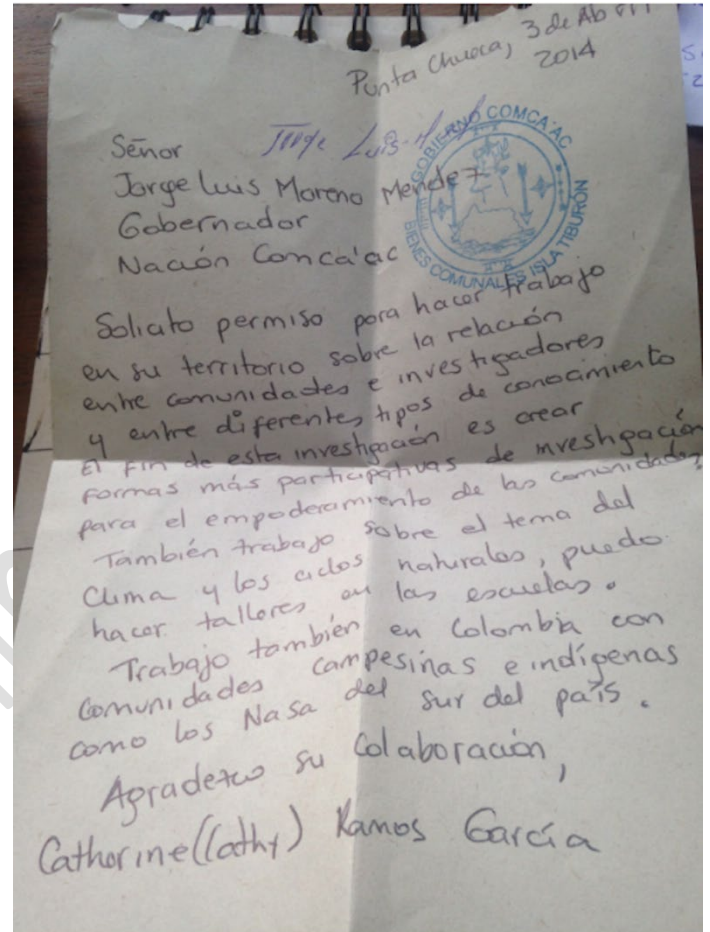 Punta Chueca, 3 de Abril
2014
Señor
Jorge Luis M
GOBIERNO COMCA'AC
BIENES COMUNALES ISLA TIBURÓN
Jorge Luis Moreno Mendez
Gobernador
Nación Comca'ac
Solicito permiso para hacer trabajo
en su territorio sobre la relación
entre comunidades e investigadores
y entre diferentes tipos de conocimiento
El fin de esta investigación es crear
formas más participativas de investigación
para el empoderamiento de las comunidades.
También trabajo sobre el tema del
Clima y los ciclos naturales, puedo
hacer talleres en las escuelas.
Trabajo también en Colombia con
Comunidades campesinas e indígenas
como los Nasa del sur del país.
Agradezco su Colaboración,
Catherine (Cathy) Ramos García